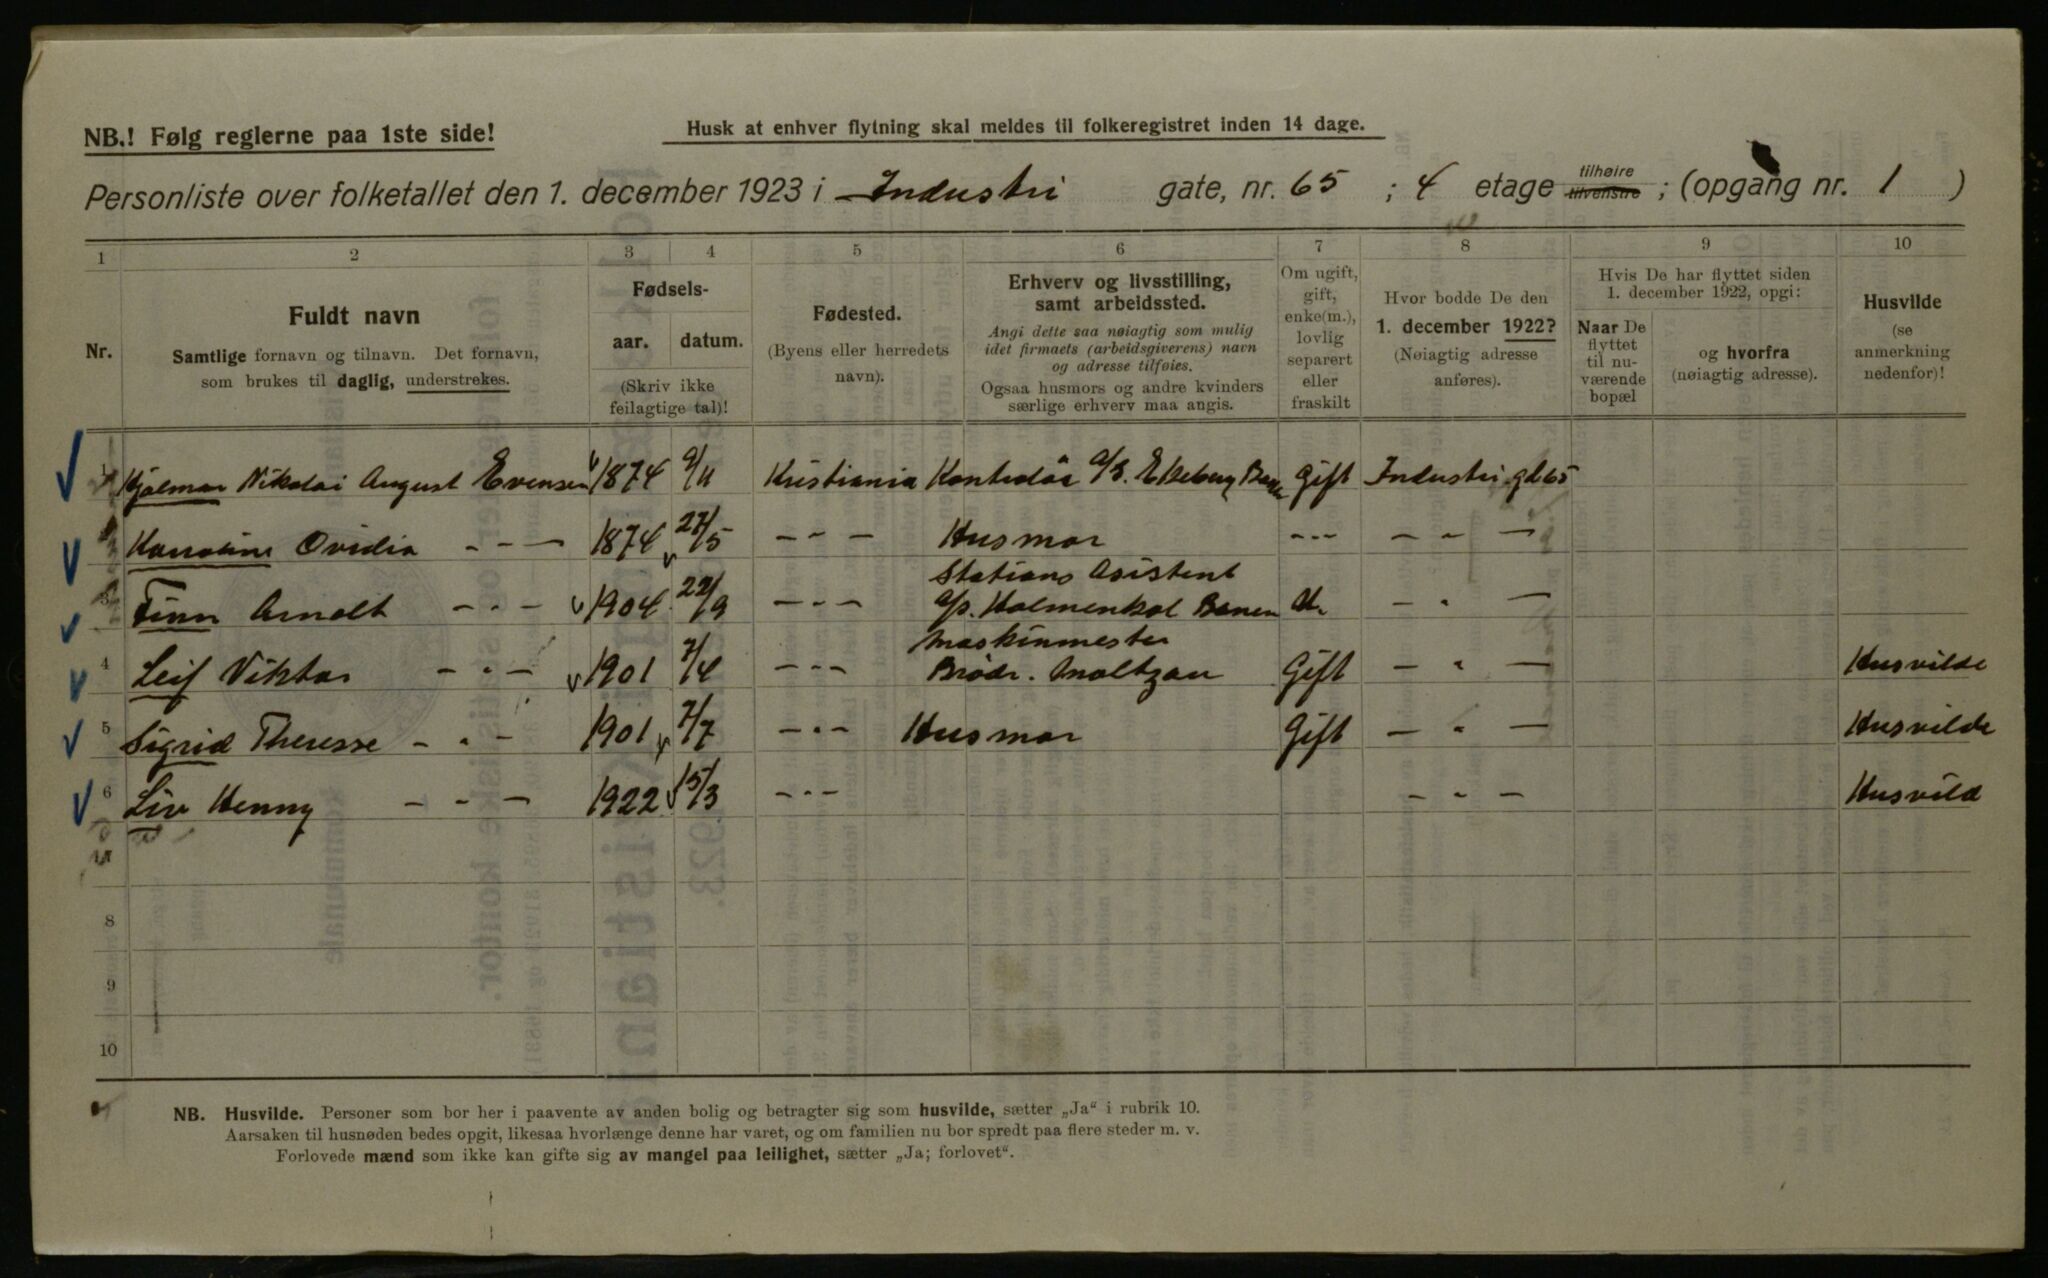 NB.! Følg reglerne paa 1ste side!
Husk at enhver flytning skal meldes til folkeregistret inden 14 dage.
Personliste over folketallet den 1. december 1923 i Industri gate, nr. 65 ; 4 etage tilhøire tilvenstre ; (opgang nr. 1 )
1 2 3 4 5 6 7 8 9 10
Nr.
Fuldt navn
Samtlige fornavn og tilnavn. Det fornavn,
som brukes til daglig, understrekes.
Fødsels-
aar. datum.
(Skriv ikke
feilagtige tal)!
Fødested.
(Byens eller herredets
navn).
Erhverv og livsstilling,
samt arbeidssted.
Angi dette saa nøiagtig som mulig
idet firmaets (arbeidsgiverens) navn
og adresse tilføies.
Ogsaa husmors og andre kvinders
særlige erhverv maa angis.
Om ugift,
gift,
enke(m.),
lovlig
separert
eller
fraskilt
Hvor bodde De den
1. december 1922?
(Nøiagtig adresse
anføres).
Hvis De har flyttet siden
1. december 1922, opgi:
Naar De
flyttet
til nu-
værende
bopæl
og hvorfra
(nøiagtig adresse).
Husvilde
(se
anmerkning
nedenfor)!
1 Hjalmar Nikolai August Evensen 1874 9/11 Kristiania Kontrolør A/S. Ekeberg Gift Industri gt 65
Karoline Ovidia - - - 1874 27/5 - - - Husmor - - - - - -
3 Finn Arnolt - - - 1904 22/9 - - - Stations Asistent
A/S. Holmenkol Banen U. - - -
4 Leif Viktor - - - 1901 7/4 - - - Maskinmester
Brødr. Moltzau Gift - - - Husvilde
5 Sigrid Theresse - - - 1901 7/7 - - - Husmor Gift - - - Husvilde
6 Liv Henny - - - 1922 15/3 - - - - - - Husvild
8
9
10
NB. Husvilde. Personer som bor her i paavente av anden bolig og betragter sig som husvilde, sætter „Ja“ i rubrik 10.
Aarsaken til husnøden bedes opgit, likesaa hvorlænge denne har varet, og om familien nu bor spredt paa flere steder m. v.
Forlovede mænd som ikke kan gifte sig av mangel paa leilighet, sætter „Ja; forlovet“.